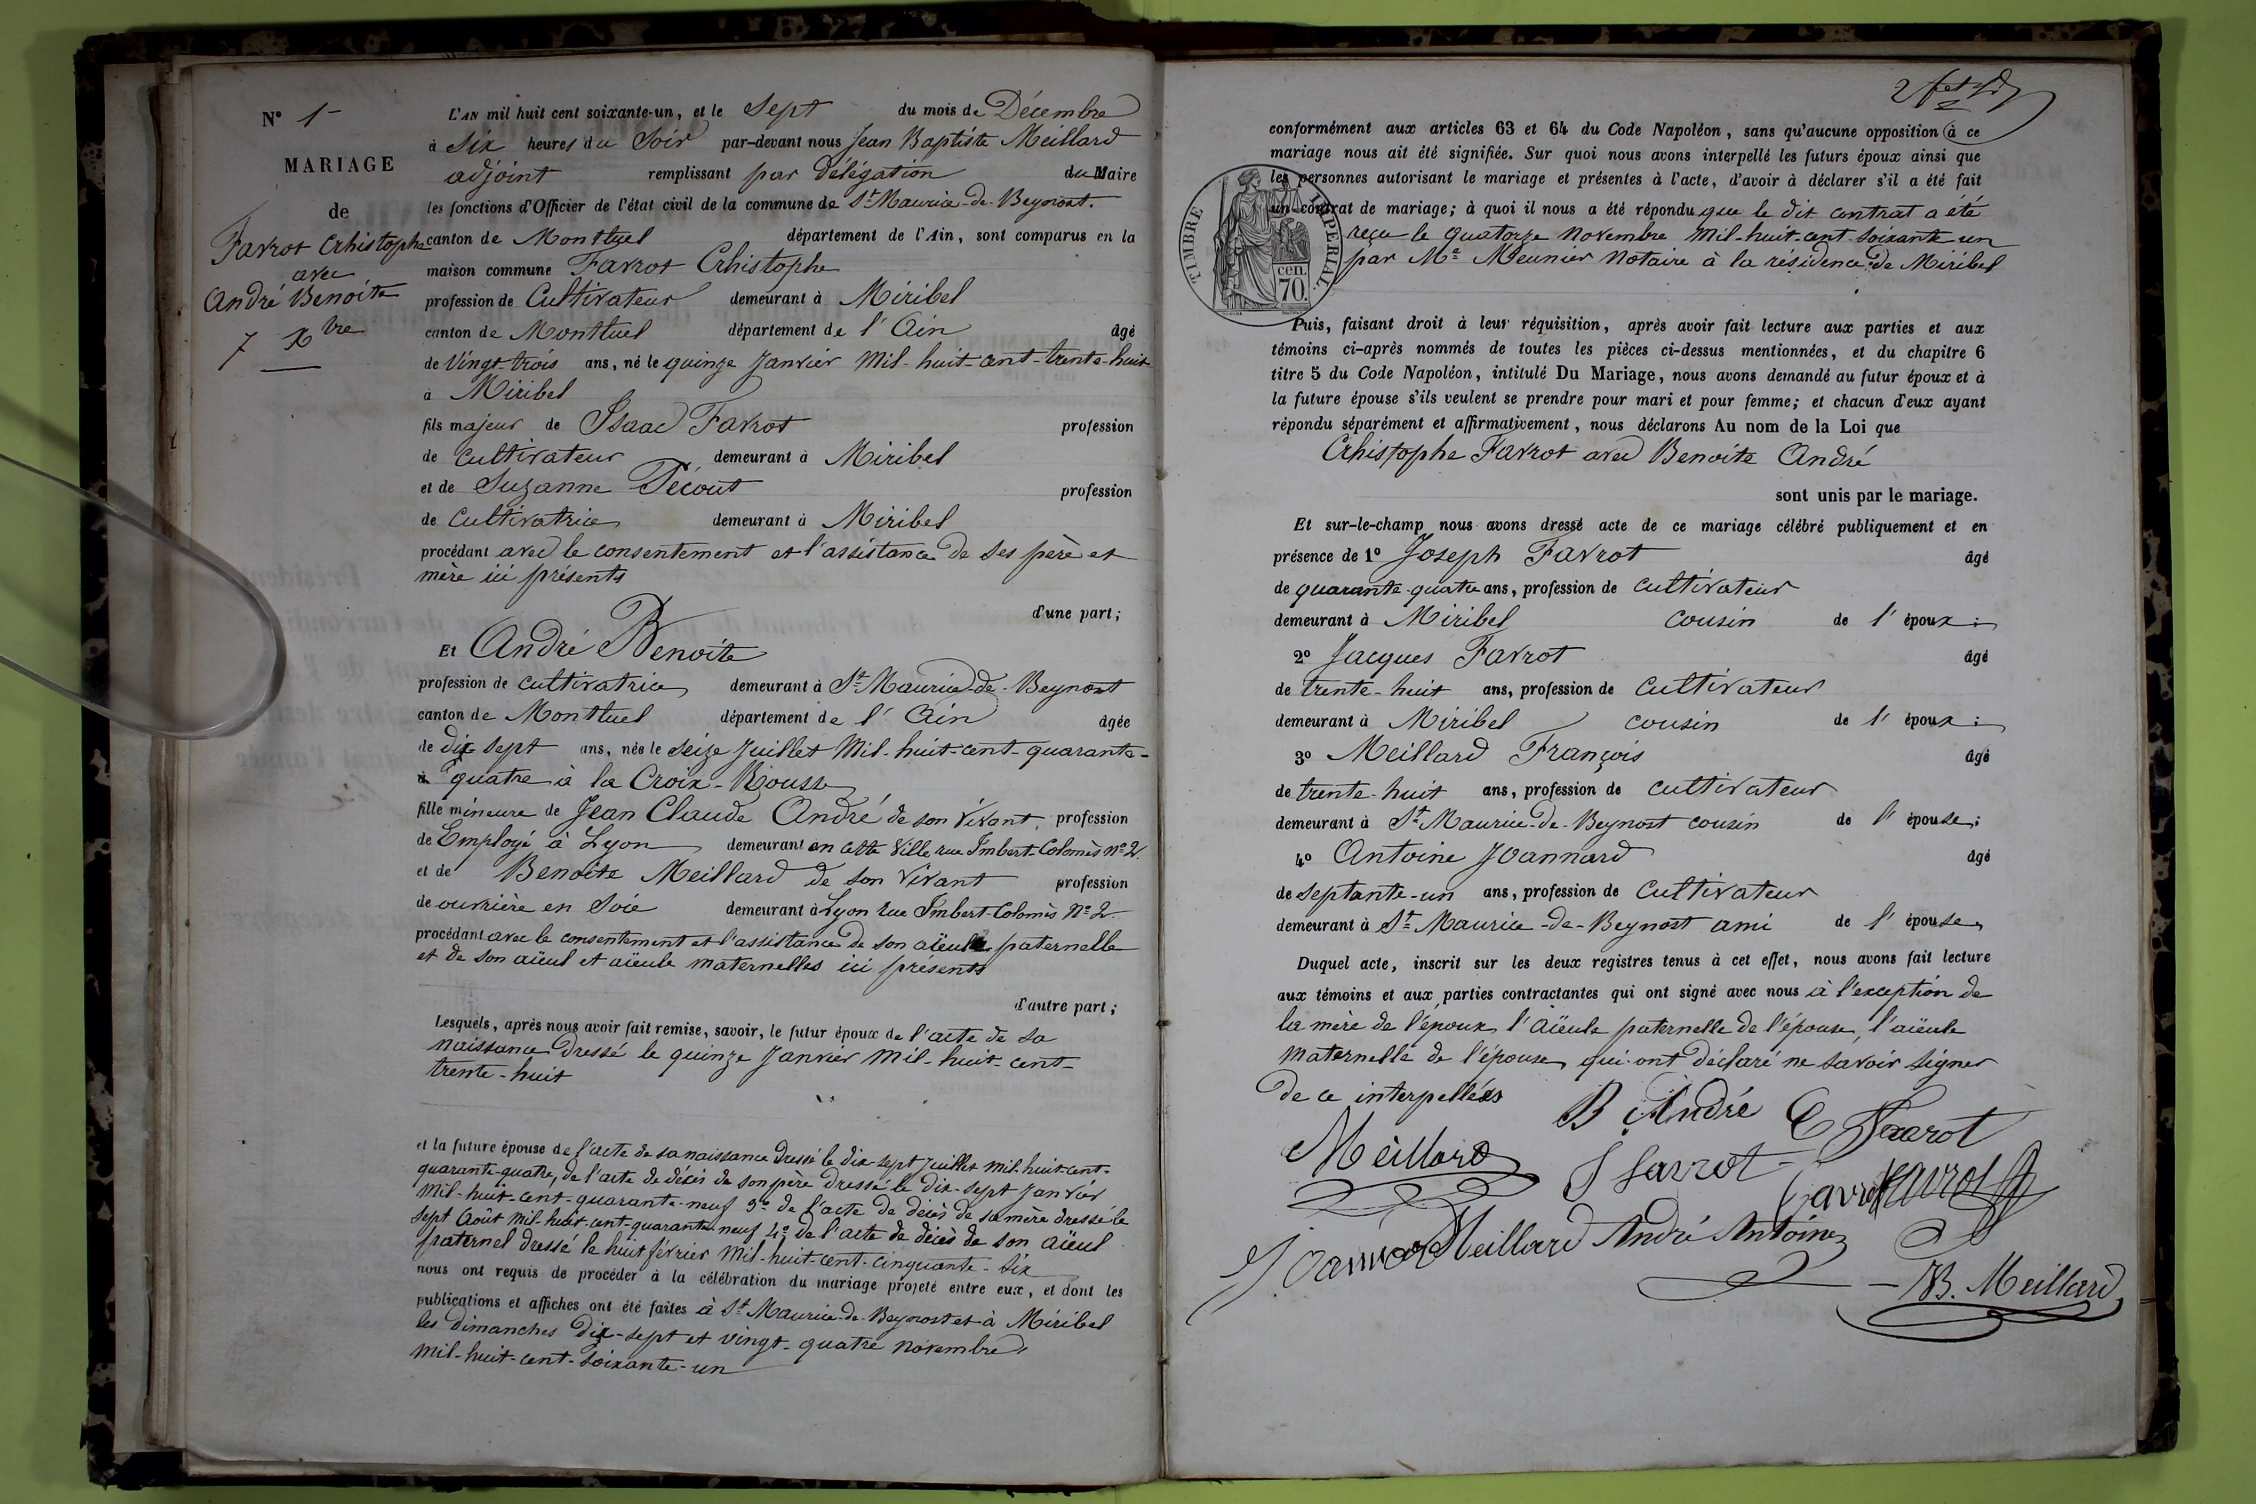 N° 1
MARIAGE
de
Favrot Crhistophe
avec
André Benoite
7 Xbre
L'AN mil huit cent soixante-un, et le Sept du mois de Décembre
à Six heures du Soir par-devant nous Jean Baptiste Meillard
adjoint remplissant par délégation du Maire
les fonctions d'Officier de l'état civil de la commune de St Maurice-de-Beynost.
canton de Montluel département de l'Ain, sont comparus en la
maison commune Favrot Crhistophe
profession de Cultivateur demeurant à Miribel
canton de Montluel département de l'Ain âgé
de Vingt-trois ans, né le quinze Janvier Mil-huit-cent-trente-huit
à Miribel
fils majeur de Isaac Favrot profession
de Cultivateur demeurant à Miribel
et de Suzanne Técout profession
de Cultivatrice demeurant à Miribel
procédant avec le consentement et l'assistance de ses père et
mère ici présents
d'une part;
Et André Benoite
profession de cultivatrice demeurant à St Maurice-de-Beynost
canton de Montluel département de l'Ain âgée
de dix sept ans, née le Seize Juillet Mil-huit-cent-quarante-
à quatre à la Croix-Rousse
fille mineure de Jean Claude André de son vivant, profession
de Employé à Lyon demeurant en cette Ville rue Imbert-Colomès N° 2.
et de Benoite Meillard de son vivant profession
de ouvrière en Soie demeurant à Lyon rue Imbert-Colomès N° 2
procédant avec le consentement et l'assistance de son aïeule paternelle
et de son aïeul et aïeule maternelles ici présents
d'autre part;
Lesquels, après nous avoir fait remise, savoir, le futur époux de l'acte de sa
naissance dressé le quinze Janvier Mil-huit-cent-
trente-huit
et la future épouse de l'acte de sa naissance dressé le dix-sept Juillet mil-huit-cent-
quarante-quatre, de l'acte de décès de son père dressé le dix-sept Janvier
Mil-huit-cent-quarante-neuf 3° de l'acte de décès de sa mère dressé le
sept Août mil-huit-cent-quarante neuf 4° de l'acte de décès de son aïeul
paternel dressé le huit février Mil-huit-cent-cinquante-six
nous ont requis de procéder à la célébration du mariage projeté entre eux, et dont les
publications et affiches ont été faites à St Maurice-de-Beynost et à Miribel
les dimanches dix-sept et vingt-quatre novembre
mil-huit-cent-soixante-un
conformément aux articles 63 et 64 du Code Napoléon, sans qu'aucune opposition à ce
mariage nous ait été signifiée. Sur quoi nous avons interpellé les futurs époux ainsi que
les personnes autorisant le mariage et présentes à l'acte, d'avoir à déclarer s'il a été fait
un contrat de mariage; à quoi il nous a été répondu que le dit contrat a été
reçu le quatorze Novembre Mil-huit-cent-soixante un
par Me Meunier Notaire à la résidence de Miribel
TIMBRE IMPERIAL
cen.
70.
Puis, faisant droit à leur réquisition, après avoir fait lecture aux parties et aux
témoins ci-après nommés de toutes les pièces ci-dessus mentionnées, et du chapitre 6
titre 5 du Code Napoléon, intitulé Du Mariage, nous avons demandé au futur époux et à
la future épouse s'ils veulent se prendre pour mari et pour femme; et chacun d'eux ayant
répondu séparément et affirmativement, nous déclarons Au nom de la Loi que
Crhistophe Favrot avec Benoite André
sont unis par le mariage.
Et sur-le-champ nous avons dressé acte de ce mariage célébré publiquement et en
présence de 1° Joseph Favrot âgé
de quarante-quatre ans, profession de cultivateur
demeurant à Miribel cousin de l'époux;
2° Jacques Favrot âgé
de trente-huit ans, profession de Cultivateur
demeurant à Miribel cousin de l'époux;
3° Meillard François âgé
de trente-huit ans, profession de cultivateur
demeurant à St Maurice-de-Beynost cousin de l'épouse;
4° Antoine Joannard âgé
de septante-un ans, profession de Cultivateur
demeurant à St Maurice-de-Beynost ami de l'épouse,
Duquel acte, inscrit sur les deux registres tenus à cet effet, nous avons fait lecture
aux témoins et aux parties contractantes qui ont signé avec nous à l'exception de
la mère de l'époux, l'aïeule paternelle de l'épouse, l'aïeule
maternelle de l'épouse, qui ont déclaré ne savoir signer
de ce interpellées
B André C Favrot
Meillard I favrot favrot favrot
Joannard Meillard André Antoine
JB. Meillard